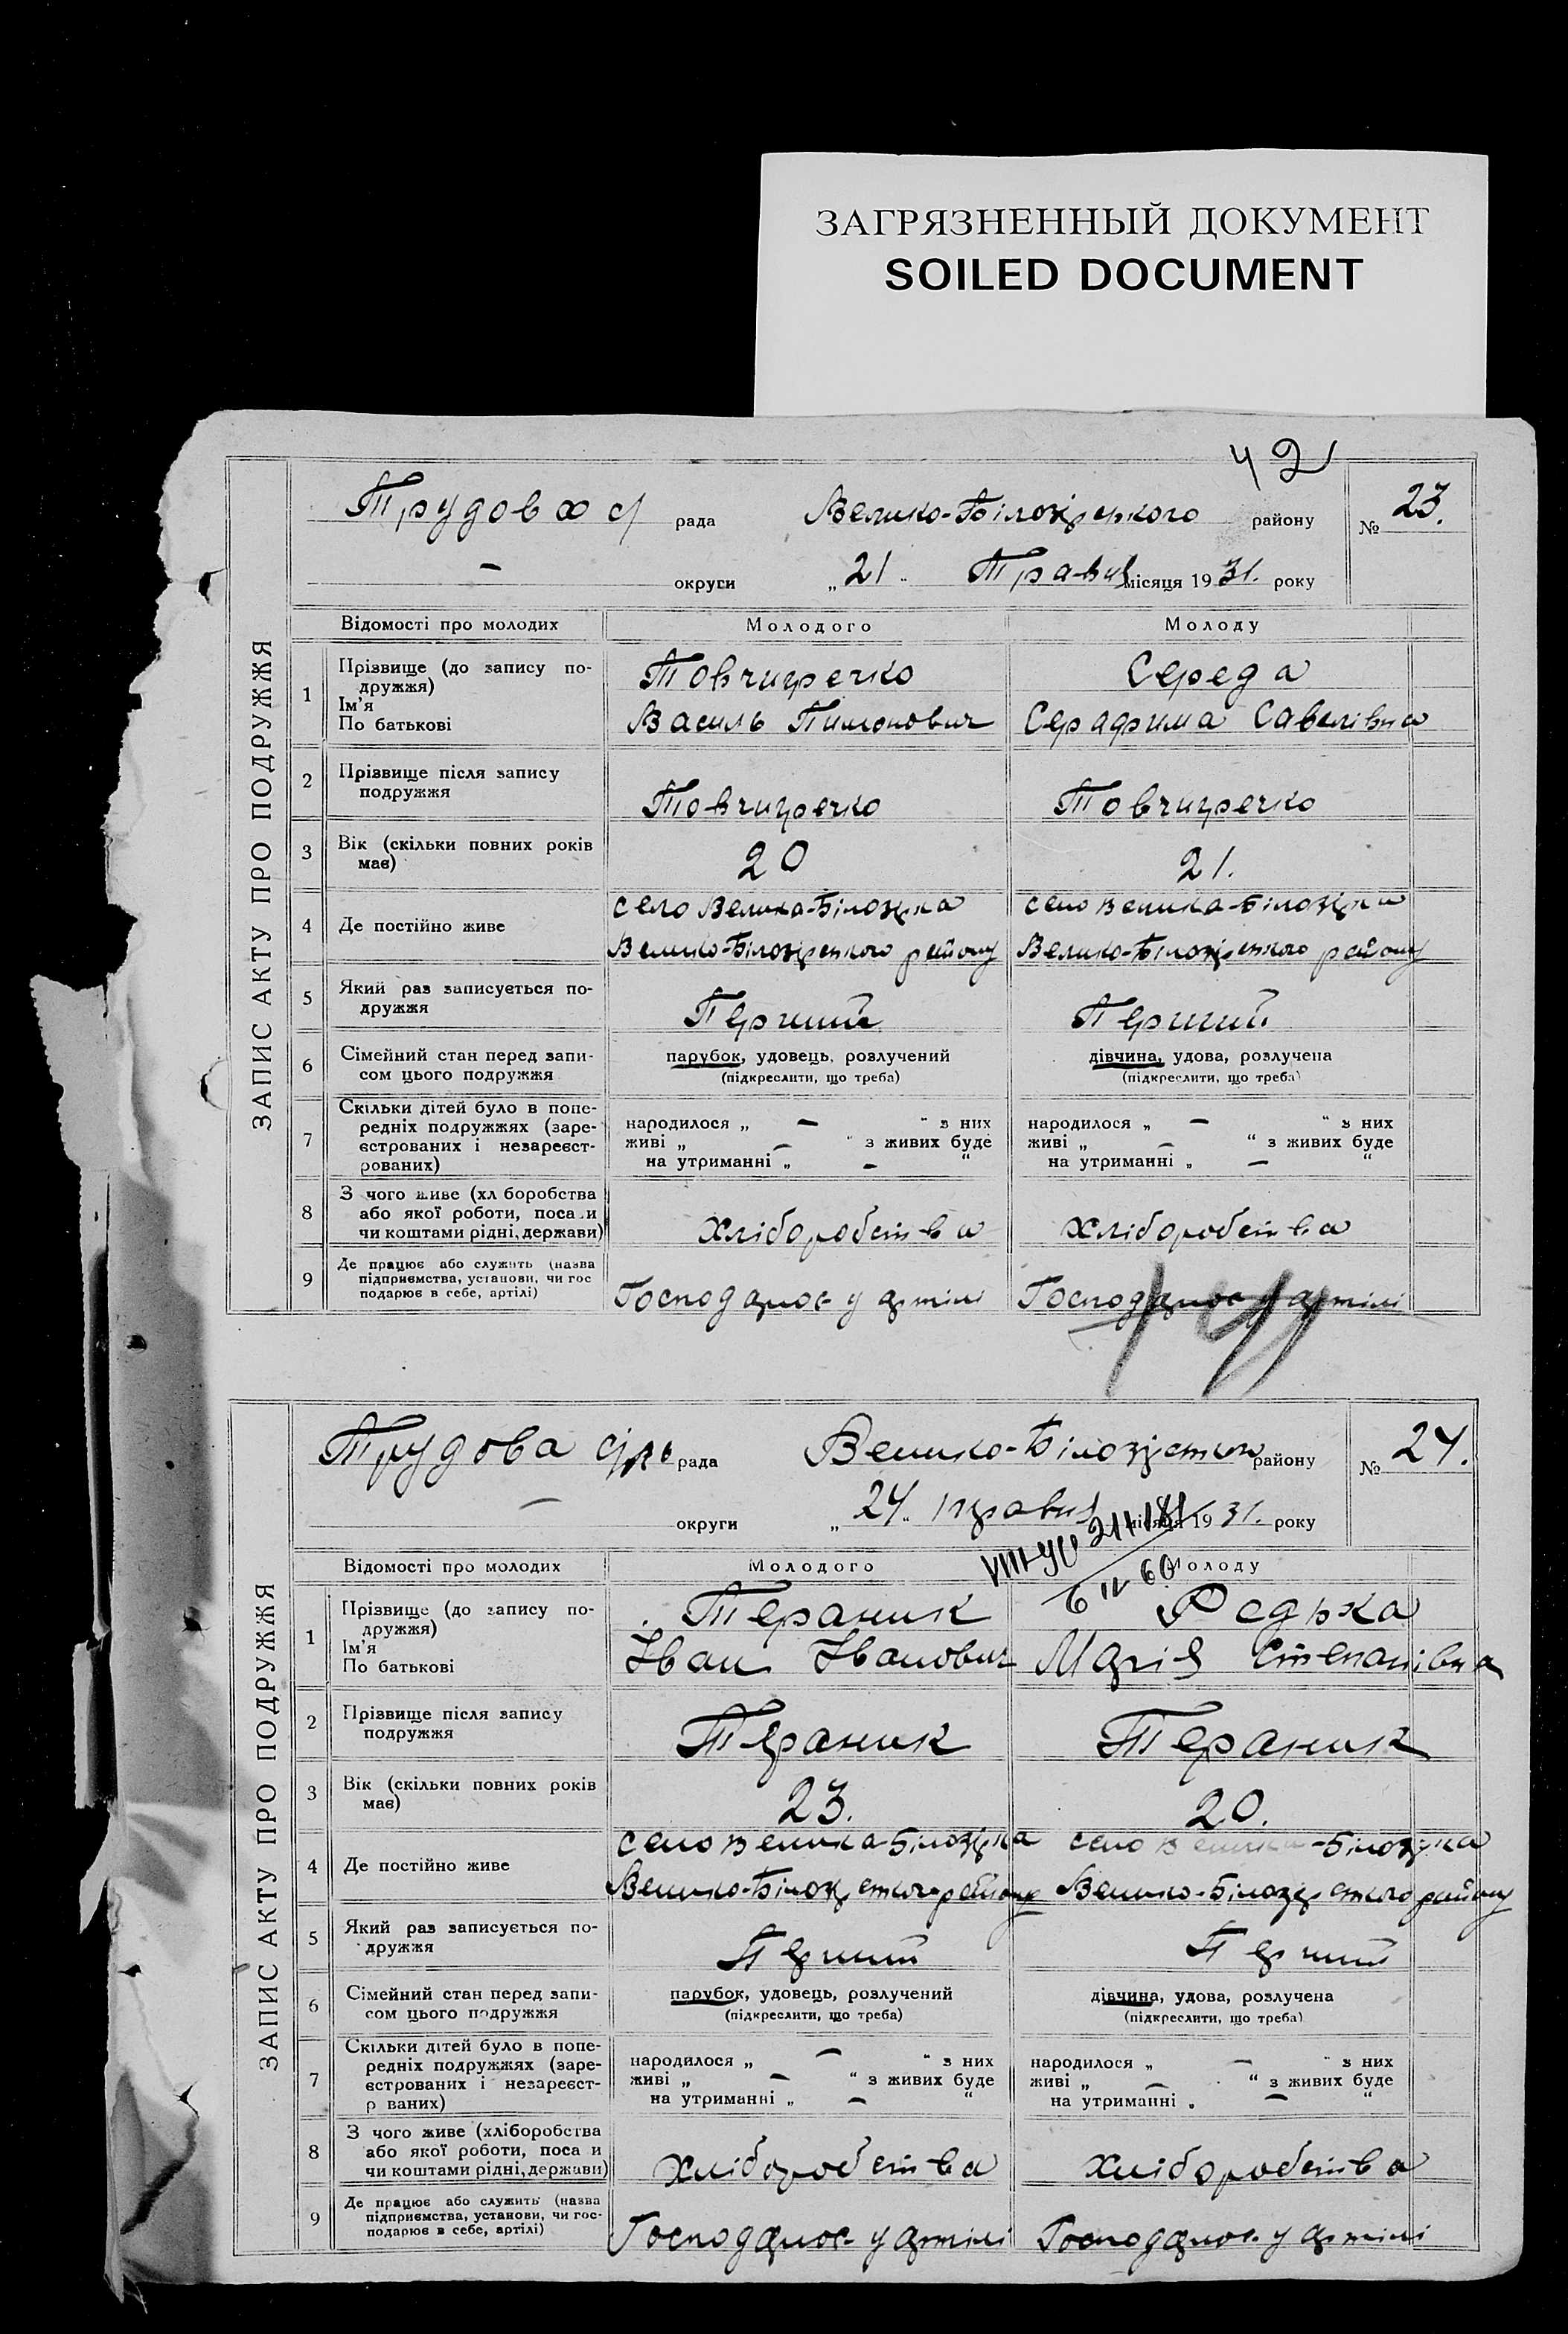 ЗАГРЯЗНЕННЫЙ ДОКУМЕНТ
SOILED DOCUMENT
42
ЗАПИС АКТУ ПРО ПОДРУЖЖЯ
Трудова с/ рада Велико-Білозірського району № 23.
— округи „21" Травня місяця 1931. року
Відомості про молодих Молодого Молоду
1 Прізвище (до запису по-
дружжя)
Ім'я
По батькові
Товчигречко Середа
Василь Пимонович Серафима Савелівна
2 Прізвище після запису
подружжя
Товчигречко Товчигречко
3 Вік (скільки повних років
має)
20 21.
4 Де постійно живе
село Велика-Білозірка село Велика-Білозірка
Велико-Білозірського району Велико-Білозірського району
5 Який раз записується по-
дружжя
Перший Перший
6 Сімейний стан перед запи-
сом цього подружжя
парубок, удовець, розлучений дівчина, удова, розлучена
(підкреслити, що треба) (підкреслити, що треба)
7 Скільки дітей було в попе-
редніх подружжях (заре-
єстрованих і незареєст-
рованих)
народилося „ — " з них народилося „ — " з них
живі „ — " з живих буде живі „ — " з живих буде
на утриманні „ — " на утриманні „ — "
8 З чого живе (хл боробства
або якої роботи, поса и
чи коштами рідні, держави)
Хліборобства Хліборобства
9 Де працює або служить (назва
підприємства, установи, чи гос
подарює в себе, артілі)
Господарює у артілі Господарює у артілі
ЗАПИС АКТУ ПРО ПОДРУЖЖЯ
Трудова рада Велико-Білозірського району № 24.
— округи „24" травня місяця 1931. року
Відомості про молодих Молодого Молоду
1 Прізвище (до запису по-
дружжя)
Ім'я
По батькові
Тераник Редька
Іван Іванович Марія Степанівна
2 Прізвище після запису
подружжя
Тераник Тераник
3 Вік (скільки повних років
має)
23. 20.
4 Де постійно живе
село Велика-Білозірка село Велика-Білозірка
Велико-Білозірського району Велико-Білозірського району
5 Який раз записується по-
дружжя
Перший Перший
6 Сімейний стан перед запи-
сом цього подружжя
парубок, удовець, розлучений дівчина, удова, розлучена
(підкреслити, що треба) (підкреслити, що треба)
7 Скільки дітей було в попе-
редніх подружжях (заре-
єстрованих і незареєст-
р ваних)
народилося „ — " з них народилося „ — " з них
живі „ — " з живих буде живі „ — " з живих буде
на утриманні „ — " на утриманні „ — "
8 З чого живе (хліборобства
або якої роботи, поса и
чи коштами рідні, держави)
Хліборобства Хліборобства
9 Де працює або служить (назва
підприємства, установи, чи гос-
подарює в себе, артілі)
Господарює у артілі Господарює у артілі